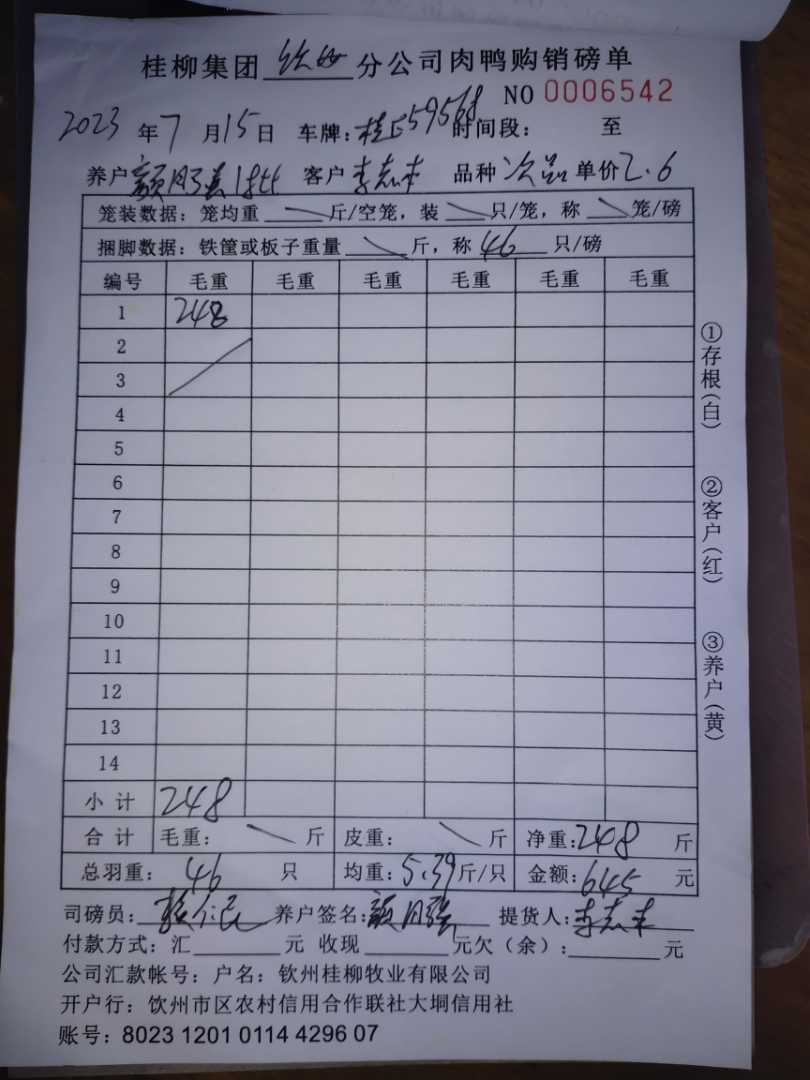 桂柳集团 钦州 分公司肉鸭购销磅单
NO 0006542
2023 年 7 月 15 日 车牌：桂 59568 时间段： 至
养户 颜月强 客户 李志 品种 次品 单价 2.6
笼装数据：笼均重 斤/空笼，装 只/笼，称 笼/磅
捆脚数据：铁筐或板子重量 斤，称 46 只/磅
编号 毛重 毛重 毛重 毛重 毛重 毛重
1 248
2
3
4
5
6
7
8
9
10
11
12
13
14
小 计 248
合 计 毛重： 斤 皮重： 斤 净重：248 斤
总羽重： 46 只 均重：5.39 斤/只 金额：645 元
司磅员： 养户签名：颜月强 提货人：李志
付款方式：汇 元 收现 元欠（余）： 元
公司汇款帐号：户名：钦州桂柳牧业有限公司
开户行：饮州市区农村信用合作联社大垌信用社
账号：8023 1201 0114 4296 07
①存根（白）
②客户（红）
③养户（黄）